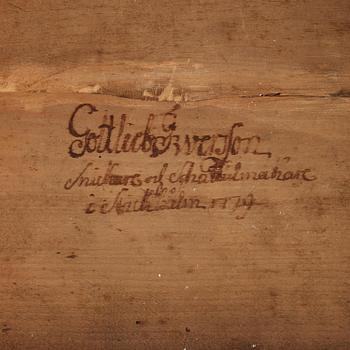 Gottlieb Iwersson
Snickare och Schattulmakare
i Stockholm 1779